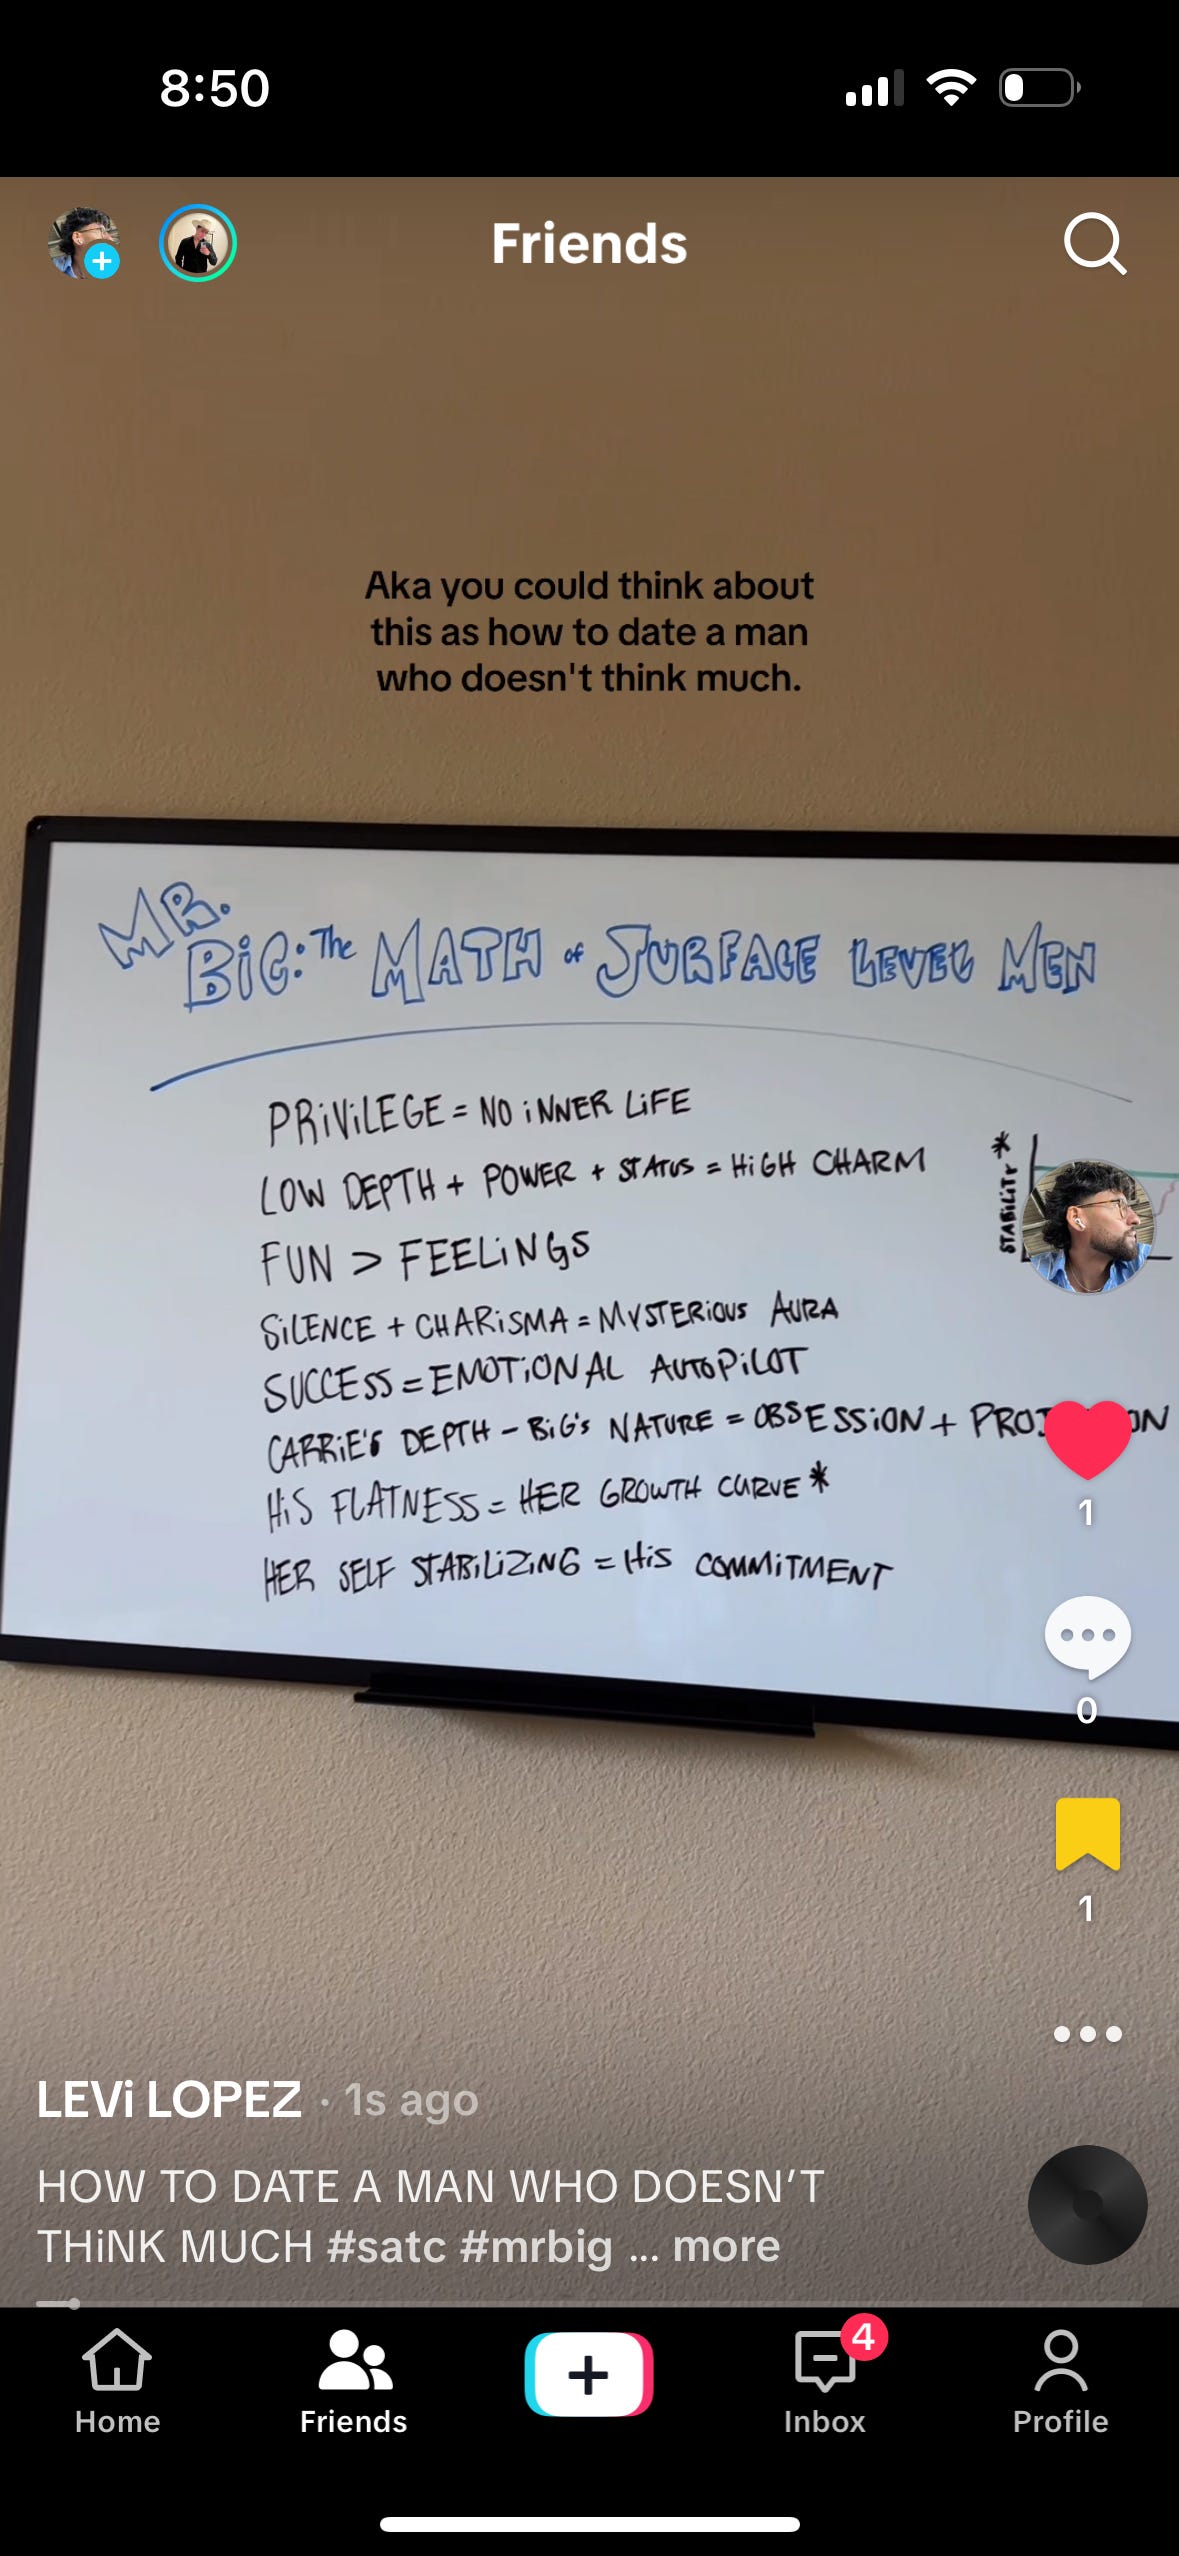 8:50
Friends
Aka you could think about
this as how to date a man
who doesn't think much.
MR.
BiG: The MATH of SURFACE LEVEL MEN
PRiViLEGE = NO iNNER LiFE
LOW DEPTH + POWER + STATUS = HiGH CHARM
STABiLiTY *
FUN > FEELiNGS
SiLENCE + CHARiSMA = MYSTERiOUS AURA
SUCCESS = EMOTiONAL AUTOPiLOT
CARRiE'S DEPTH - BiG'S NATURE = OBSESSiON +
HiS FLATNESS = HER GROWTH CURVE *
HER SELF STABiLiZiNG = HiS COMMiTMENT
1
0
1
LEVi LOPEZ · 1s ago
HOW TO DATE A MAN WHO DOESN'T
THiNK MUCH #satc #mrbig ... more
4
Home
Friends
Inbox
Profile